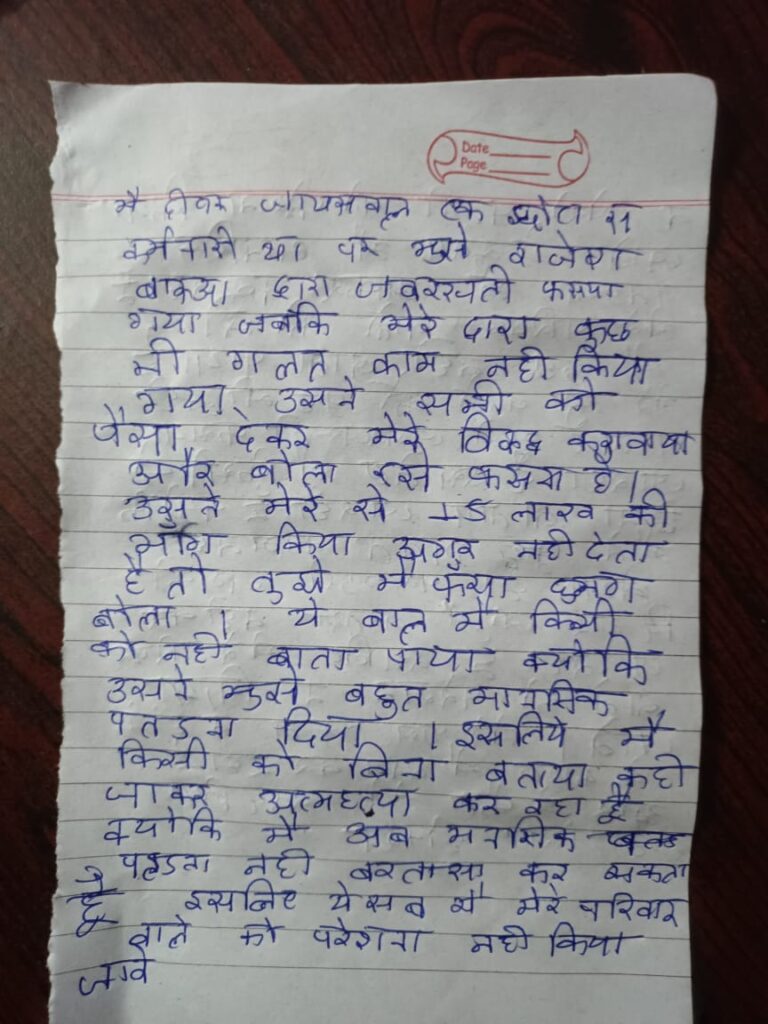 Date
Page
मै दीपक जायसवाल एक छोटा सा
कर्मचारी था पर मुझे राजेश
द्वारा जबरस्वती फसया
गया जबकि मेरे द्वारा कुछ
भी गलत काम नही किया
गया उसने सभी को
पैसा देकर मेरे विरुद्ध करवाया
और बोला इसे फसना है।
उसने मेरे से 15 लाख की
माँग किया अगर नही देता
है तो तुझे मै फँसा दुंगा
बोला । ये बात मै किसी
को नही बाता पाया क्योकि
उसने मुझे बहुत मानसिक
पतडना दिया । इसलिये मै
किसी को बिना बताया कही
जाकर आत्महत्या कर रहा हूँ
क्योकि मै अब मनसिक
पतडना नही बरतास कर सकता
हूँ इसलिए ये सब से मेरे परिवार
वाले को परेशना नही किया
जावे